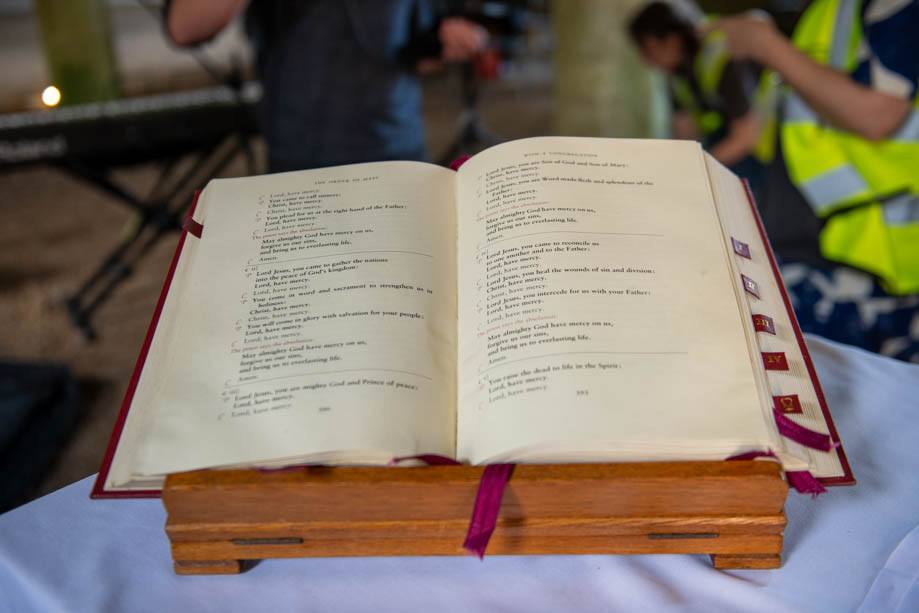 Roland
THE ORDER OF MASS
Lord, have mercy.
You came to call sinners:
Christ, have mercy.
C Christ, have mercy.
P You plead for us at the right hand of the Father:
Lord, have mercy.
C Lord, have mercy.
The priest says the absolution:
May almighty God have mercy on us,
forgive us our sins,
and bring us to everlasting life.
C Amen.
Lord Jesus, you came to gather the nations
into the peace of God's kingdom:
Lord, have mercy.
C Lord, have mercy.
P You come in word and sacrament to strengthen us in
holiness:
Christ, have mercy.
C Christ, have mercy.
P You will come in glory with salvation for your people:
Lord, have mercy.
C Lord, have mercy.
The priest says the absolution:
May almighty God have mercy on us,
forgive us our sins,
and bring us to everlasting life.
C Amen.
P Lord Jesus, you are mighty God and Prince of peace:
Lord, have mercy.
C Lord, have mercy.
WITH A CONGREGATION
P Lord Jesus, you are Son of God and Son of Mary:
Christ, have mercy.
C Christ, have mercy.
P Lord Jesus, you are Word made flesh and splendour of the
Father:
Lord, have mercy.
C Lord, have mercy.
The priest says the absolution:
May almighty God have mercy on us,
forgive us our sins,
and bring us to everlasting life.
C Amen.
P Lord Jesus, you came to reconcile us
to one another and to the Father:
Lord, have mercy.
C Lord, have mercy.
P Lord Jesus, you heal the wounds of sin and division:
Christ, have mercy.
C Christ, have mercy.
P Lord Jesus, you intercede for us with your Father:
Lord, have mercy.
C Lord, have mercy.
The priest says the absolution:
May almighty God have mercy on us,
forgive us our sins,
and bring us to everlasting life.
C Amen.
P You raise the dead to life in the Spirit:
Lord, have mercy.
C Lord, have mercy.
III
IV